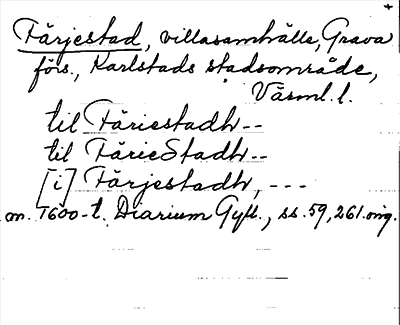 Färjestad, villasamhälle, Grava
förs., Karlstads stadsområde,
Värml. l.
til Färiestadh--
til FärieStadh--
[i] Färjestadh, ---
m. 1600-t. Diarium Gyll., ss. 59, 261. orig.